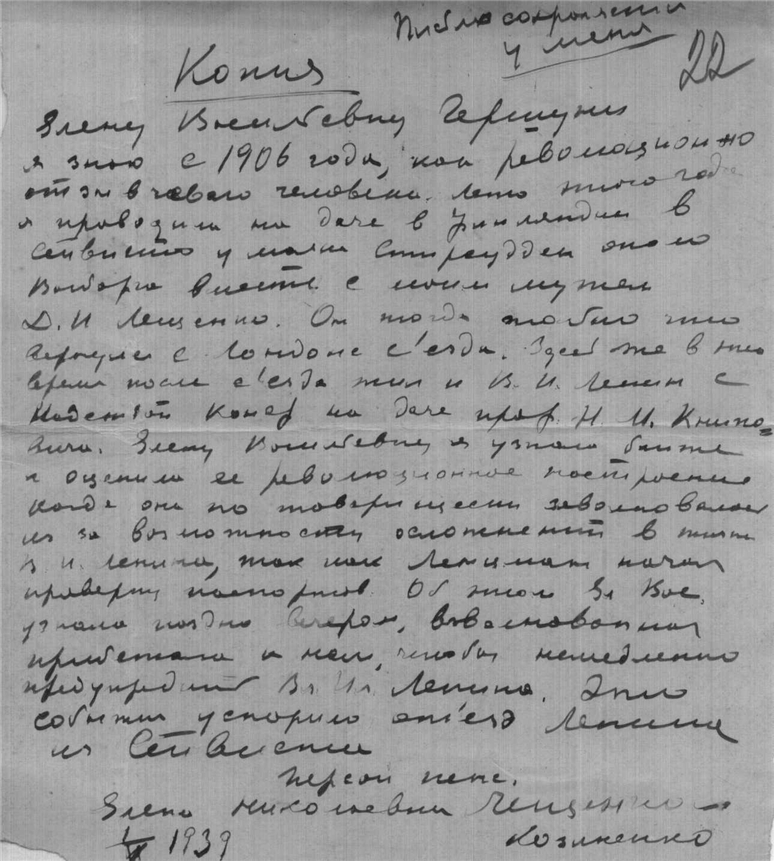 сохраняется
у меня
22
Копия
Элену Васильевну Гершуни
я знаю с 1906 года, как революционно
отзывчивого человека. Лето этого года
я проводила на даче в Финляндии в
Сейвисто у маяка Стирсудден около
Выборга вместе с моим мужем
Д. И Лещенко. Он тогда только что
вернулся с Лондонс с'езда. Здесь же в это
время после с'езда жил и В. И. Ленин с
Надеждой Конст на даче проф. Н. И. Книпо=
вича. Элену Васильевну я узнала ближе
и оценила ее революционное настроение
когда она по товарищески заволновалась
из за возможности осложнений в жизни
В. И. Ленина, так как начал
проверку паспортов. Об этом Эл Вас.
узнала поздно вечером, взволнованная
прибежала к нам, чтобы немедленно
предупредить Вл. Ил Ленина. Это
событие ускорило от'езд Ленина
из Сейвисто
Персон пенс.
Элена Николаевна Лещенко
1939